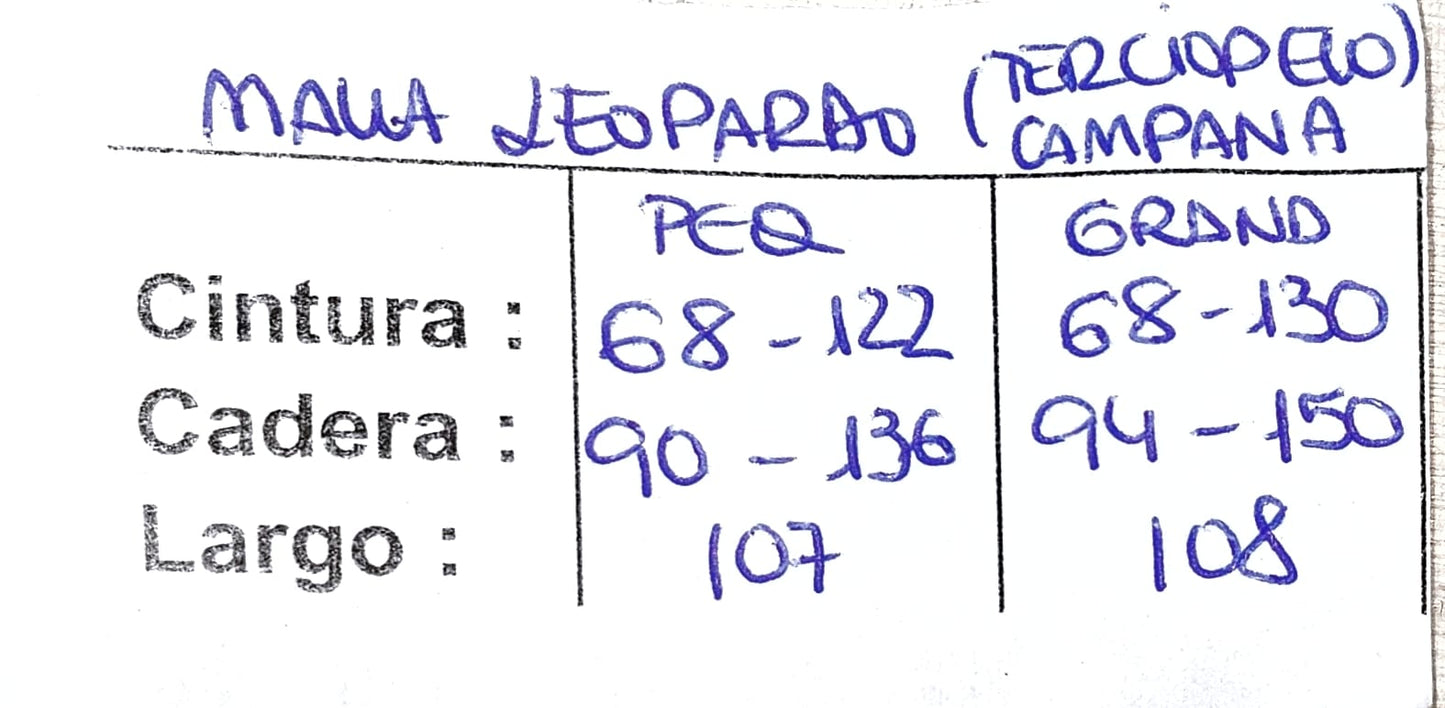 MALLA LEOPARDO (TERCIOPELO)
CAMPANA
PEQ GRAND
Cintura : 68 - 122 68 - 130
Cadera : 90 - 136 94 - 150
Largo : 107 108